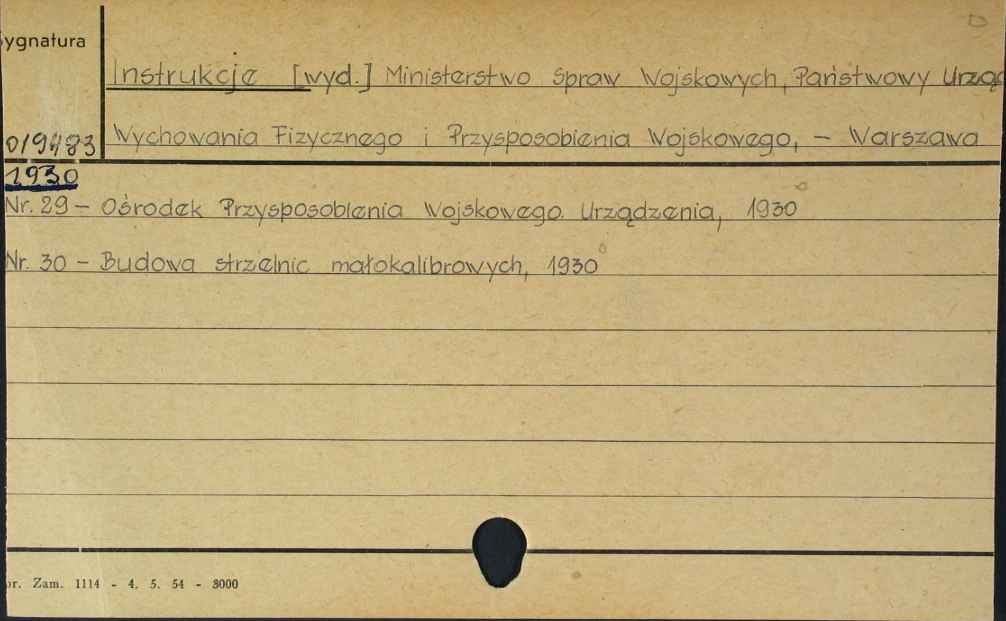 ygnatura
Instrukcje [wyd.] Ministerstwo Spraw Wojskowych, Państwowy Urząd
019483 Wychowania Fizycznego i Przysposobienia Wojskowego, – Warszawa
1930
Nr. 29 – Ośrodek Przysposobienia Wojskowego. Urządzenia, 1930
Nr. 30 – Budowa strzelnic małokalibrowych, 1930
or. Zam. 1114 - 4. 5. 54 - 3000